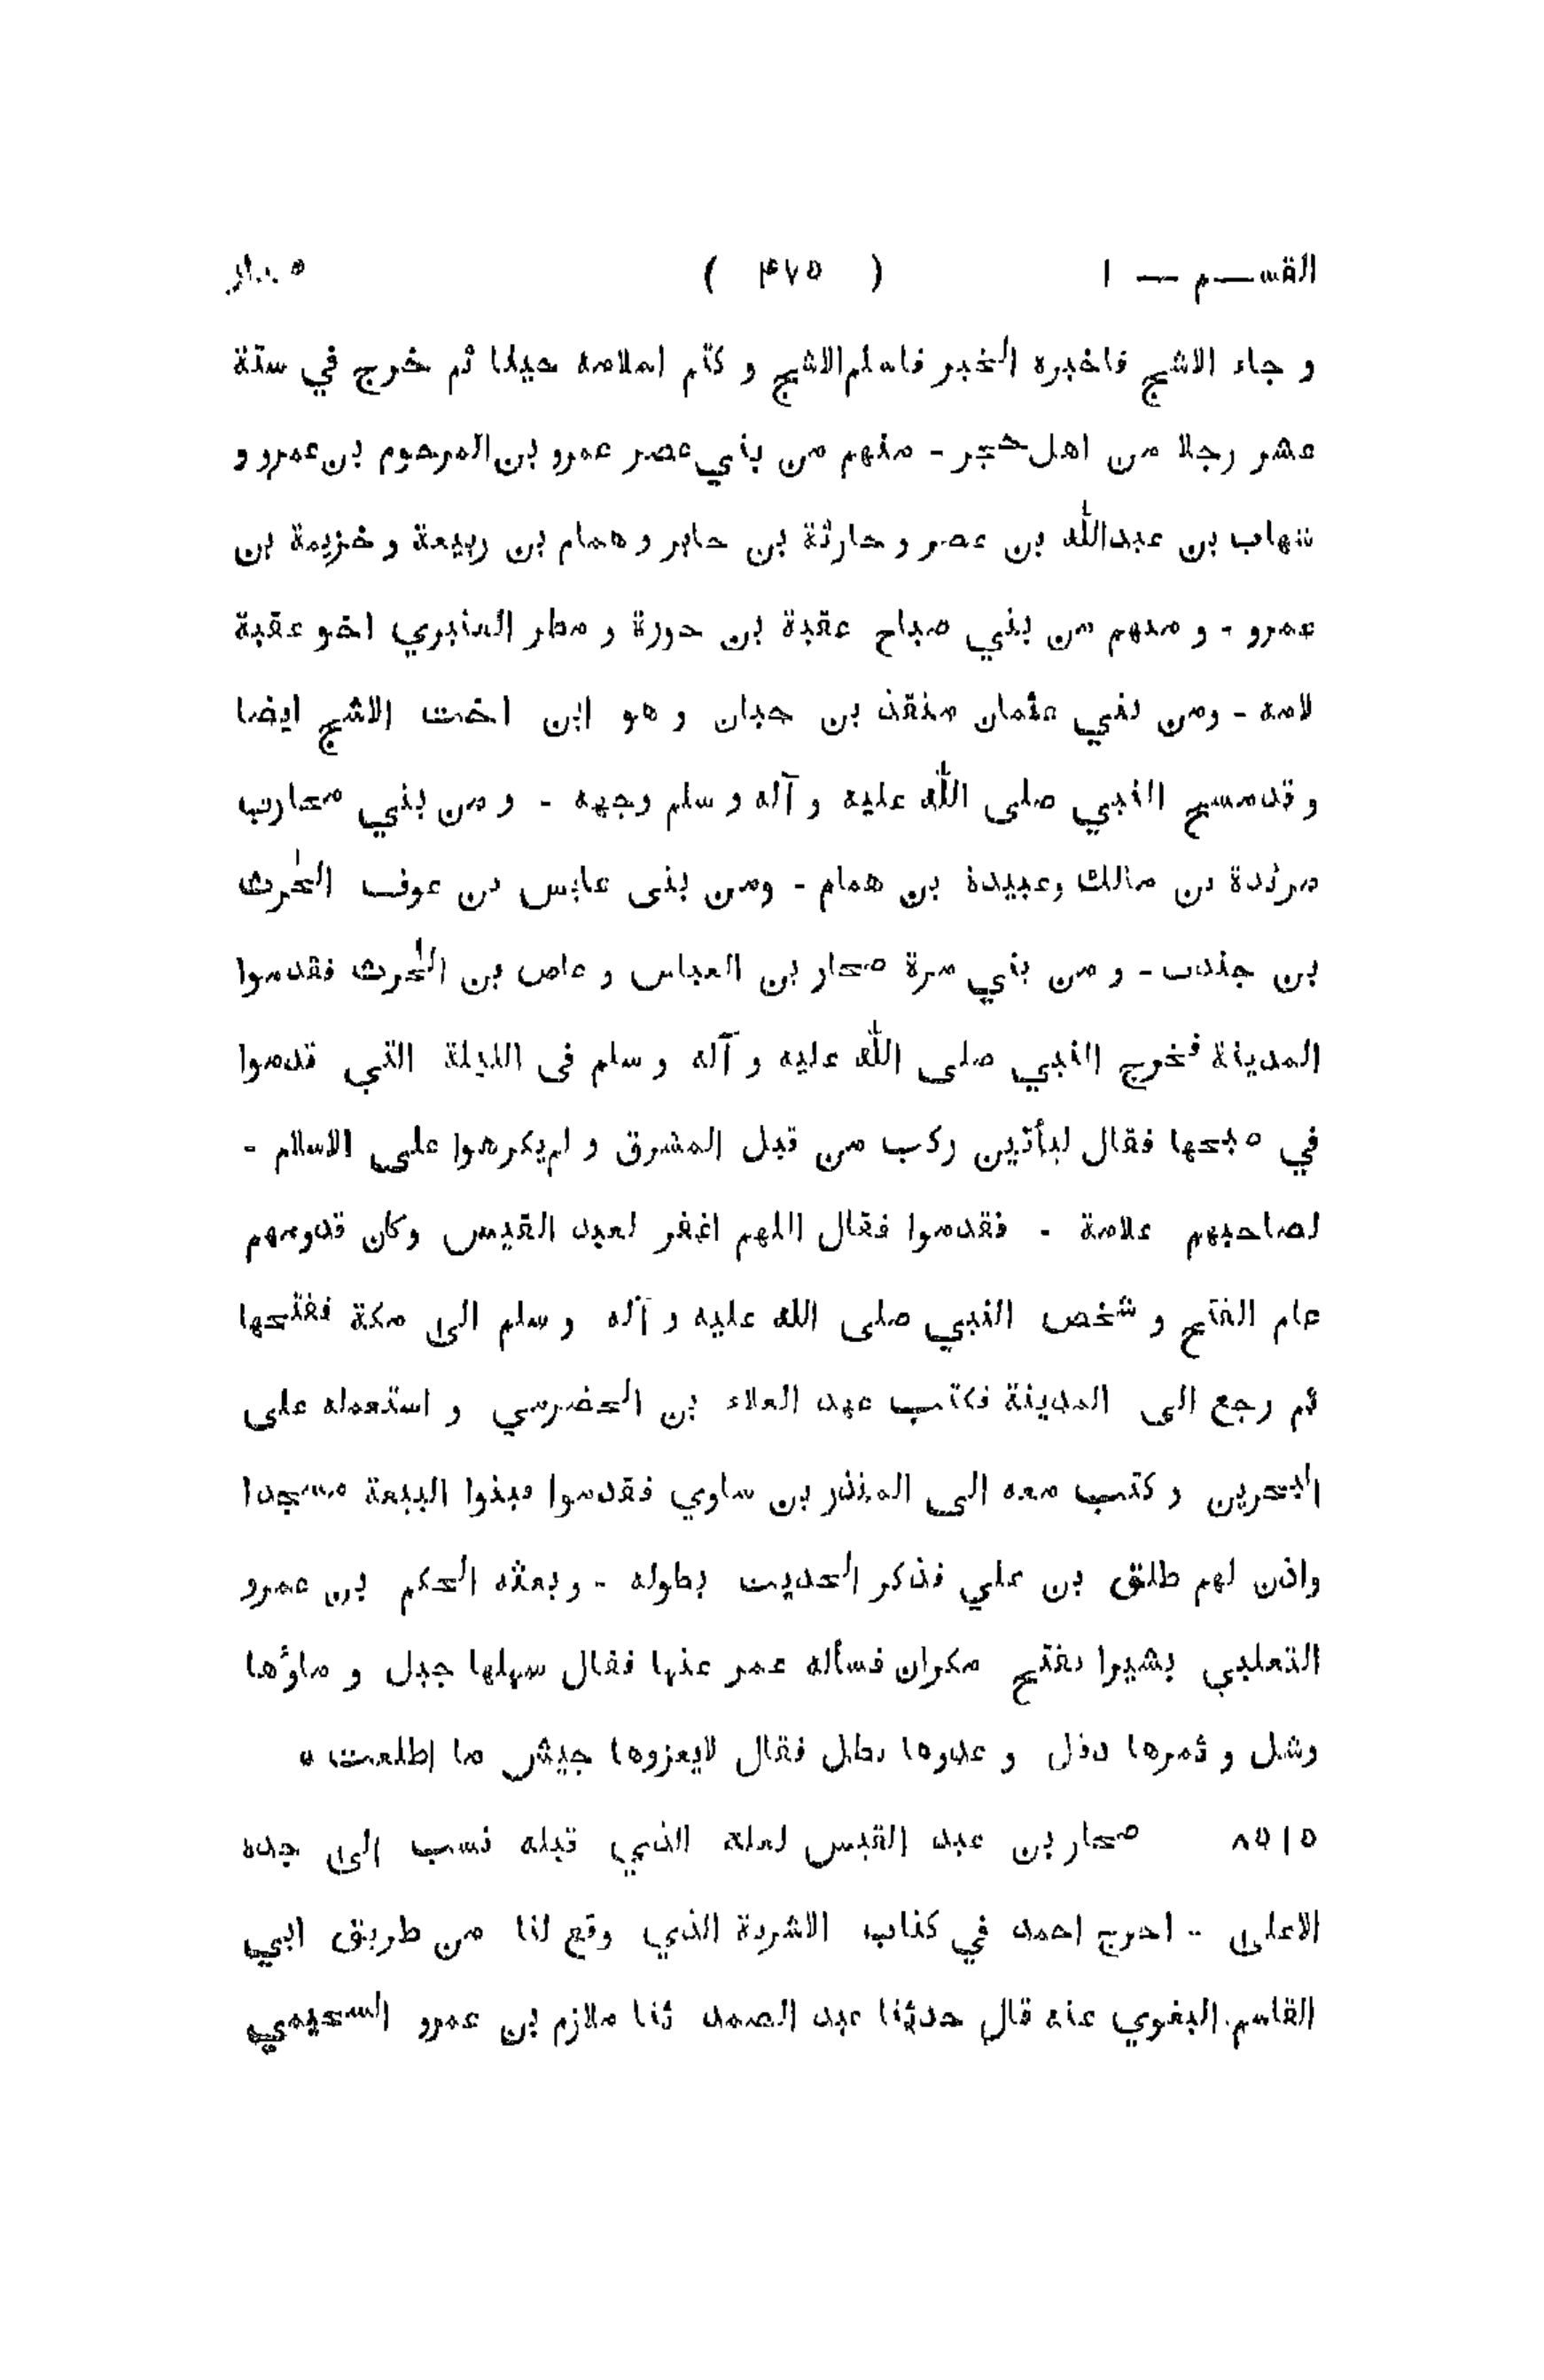 القسم — ١ ( ٤٧٥ ) صحار
و جاء الاشج فاخبره الخبر فاسلم الاشج و كتم اسلامه حينا ثم خرج في ستة
عشر رجلا من اهل هجر - منهم من بني عصر عمرو بن المرحوم بن عمرو و
شهاب بن عبد الله بن عصر و حارثة بن جابر و همام بن ربيعة و خزيمة بن
عمرو - و منهم من بني صباح عقبة بن حورة و مطر العنبري اخو عقبة
لامه - ومن بني عثمان منقذ بن حبان و هو ابن اخت الاشج ايضا
و قد مسح النبي صلى الله عليه و آله و سلم وجهه - و من بني محارب
مرثدة بن مالك وعبيدة بن همام - ومن بنى عابس بن عوف الحٰرث
بن جندب - و من بني مرة صحار بن العباس و عاص بن الحٰرث فقدموا
المدينة فخرج النبي صلى الله عليه و آله و سلم فى الليلة التي قدموا
في صبحها فقال ليأتين ركب من قبل المشرق و لم يكرهوا على الاسلام -
لصاحبهم علامة - فقدموا فقال اللهم اغفر لعبد القيس وكان قدومهم
عام الفتح و شخص النبي صلى الله عليه و آله و سلم الى مكة ففتحها
ثم رجع الى المدينة فكتب عهد العلاء بن الحضرمي و استعمله على
البحرين و كتب معه الى المنذر بن ساوي فقدموا فبنوا البيعة مسجدا
واذن لهم طلق بن علي فذكر الحديث بطوله - و بعثه الحكم بن عمرو
الثعلبي بشيرا بفتح مكران فسأله عمر عنها فقال سهلها جبل و ماؤها
وشل و ثمرها دقل و عدوها بطل فقال لايغزوها جيش ما اطلعت *
٨٥١٥ صحار بن عبد القيس لعله الذي قبله نسب الى جده
الاعلى - اخرج احمد في كتاب الاشربة الذي وقع لنا من طريق ابي
القاسم البغوي عنه قال حدثنا عبد الصمد ثنا ملازم بن عمرو السحيمي